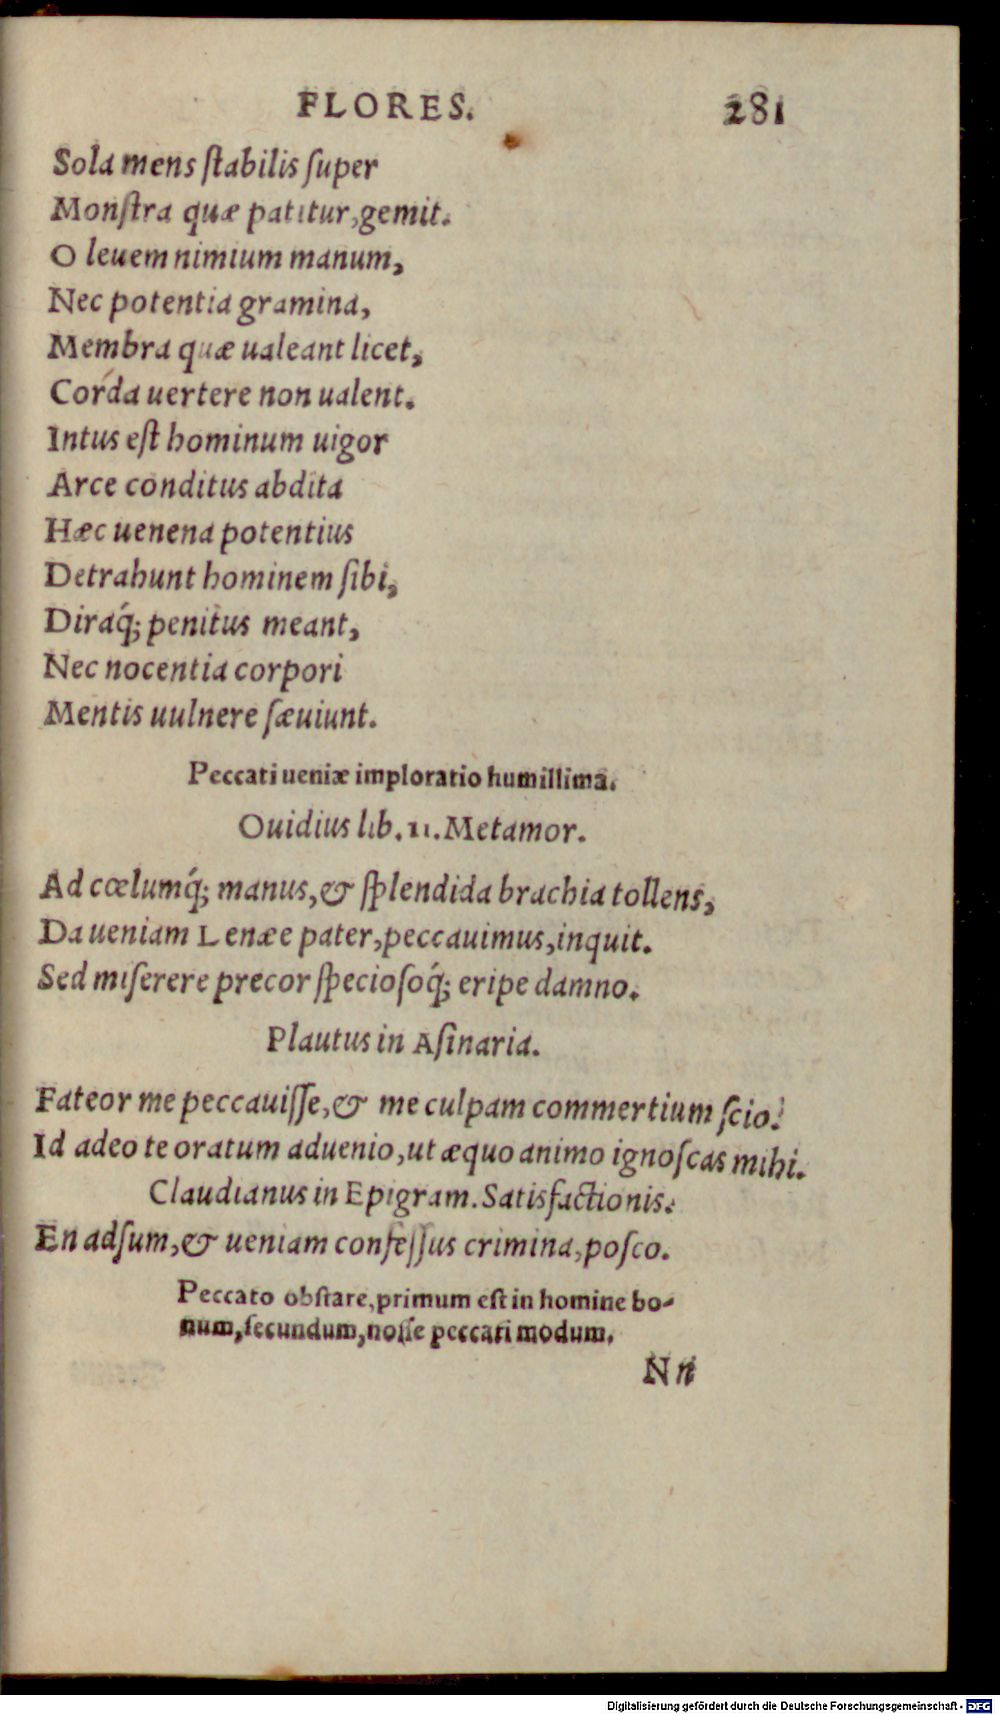 FLORES. 281
Sola mens ſtabilis ſuper
Monſtra quæ patitur, gemit.
O leuem nimium manum,
Nec potentia gramina,
Membra quæ ualeant licet,
Corda uertere non ualent.
Intus eſt hominum uigor
Arce conditus abdita
Hæc uenena potentius
Detrahunt hominem ſibi,
Diraq́; penitus meant,
Nec nocentia corpori
Mentis uulnere ſæuiunt.
Peccati ueniæ imploratio humillima.
Ouidius lib. 11. Metamor.
Ad cœlumq́; manus, & ſplendida brachia tollens,
Da ueniam Lenæe pater, peccauimus, inquit.
Sed miſerere precor ſpecioſoq́; eripe damno.
Plautus in Aſinaria.
Fateor me peccauiſſe, & me culpam commertium ſcio.
Id adeo te oratum aduenio, ut æquo animo ignoſcas mihi.
Claudianus in Epigram. Satisfactionis.
En adſum, & ueniam confeſſus crimina, poſco.
Peccato obſtare, primum eſt in homine bo-
num, ſecundum, noſſe peccati modum.
Nn
Digitalisierung gefördert durch die Deutsche Forschungsgemeinschaft - DFG